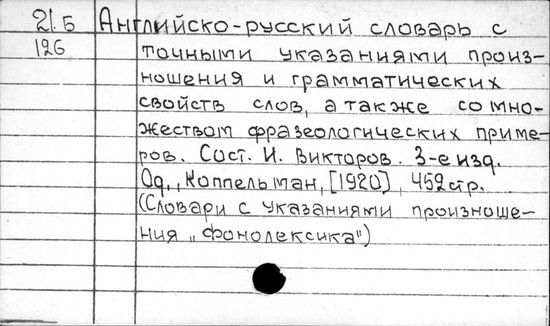 21.Б Англійско-русский словарь с
126 точными указаниями произ-
ношения и грамматических
свойств слов, а также со мно-
жеством фразеологических приме-
ров. Сост. И. Викторов. 3-е изд.
Од., Коппельман, [1920], 452 стр.
(Словари с указаниями произноше-
ния „Фонолексика")